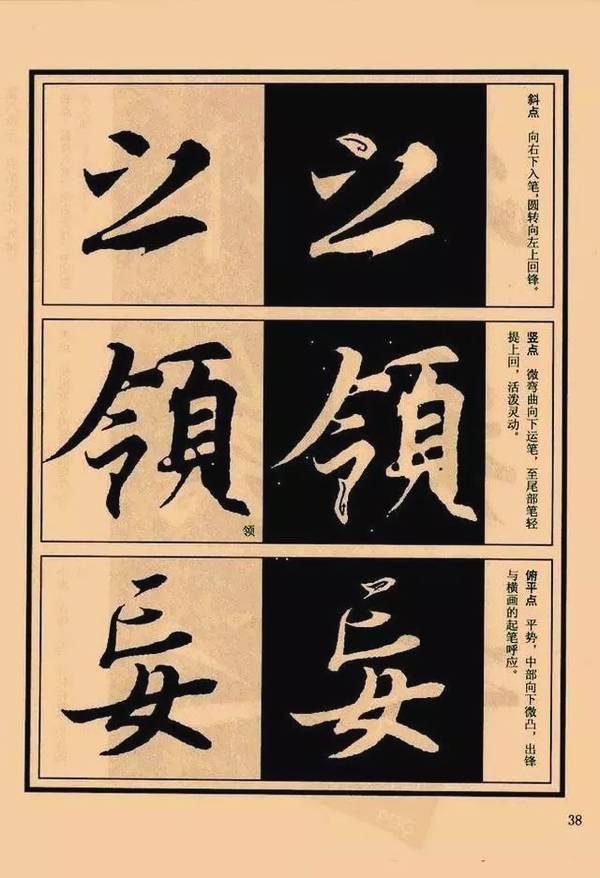 斜点 向右下入笔，圆转向左上回锋。
之
之
竖点 微弯曲向下运笔，至尾部笔轻
提上回，活泼灵动。
領
領
领
俯平点 平势，中部向下微凸，出锋
与横画的起笔呼应。
妄
妄
38